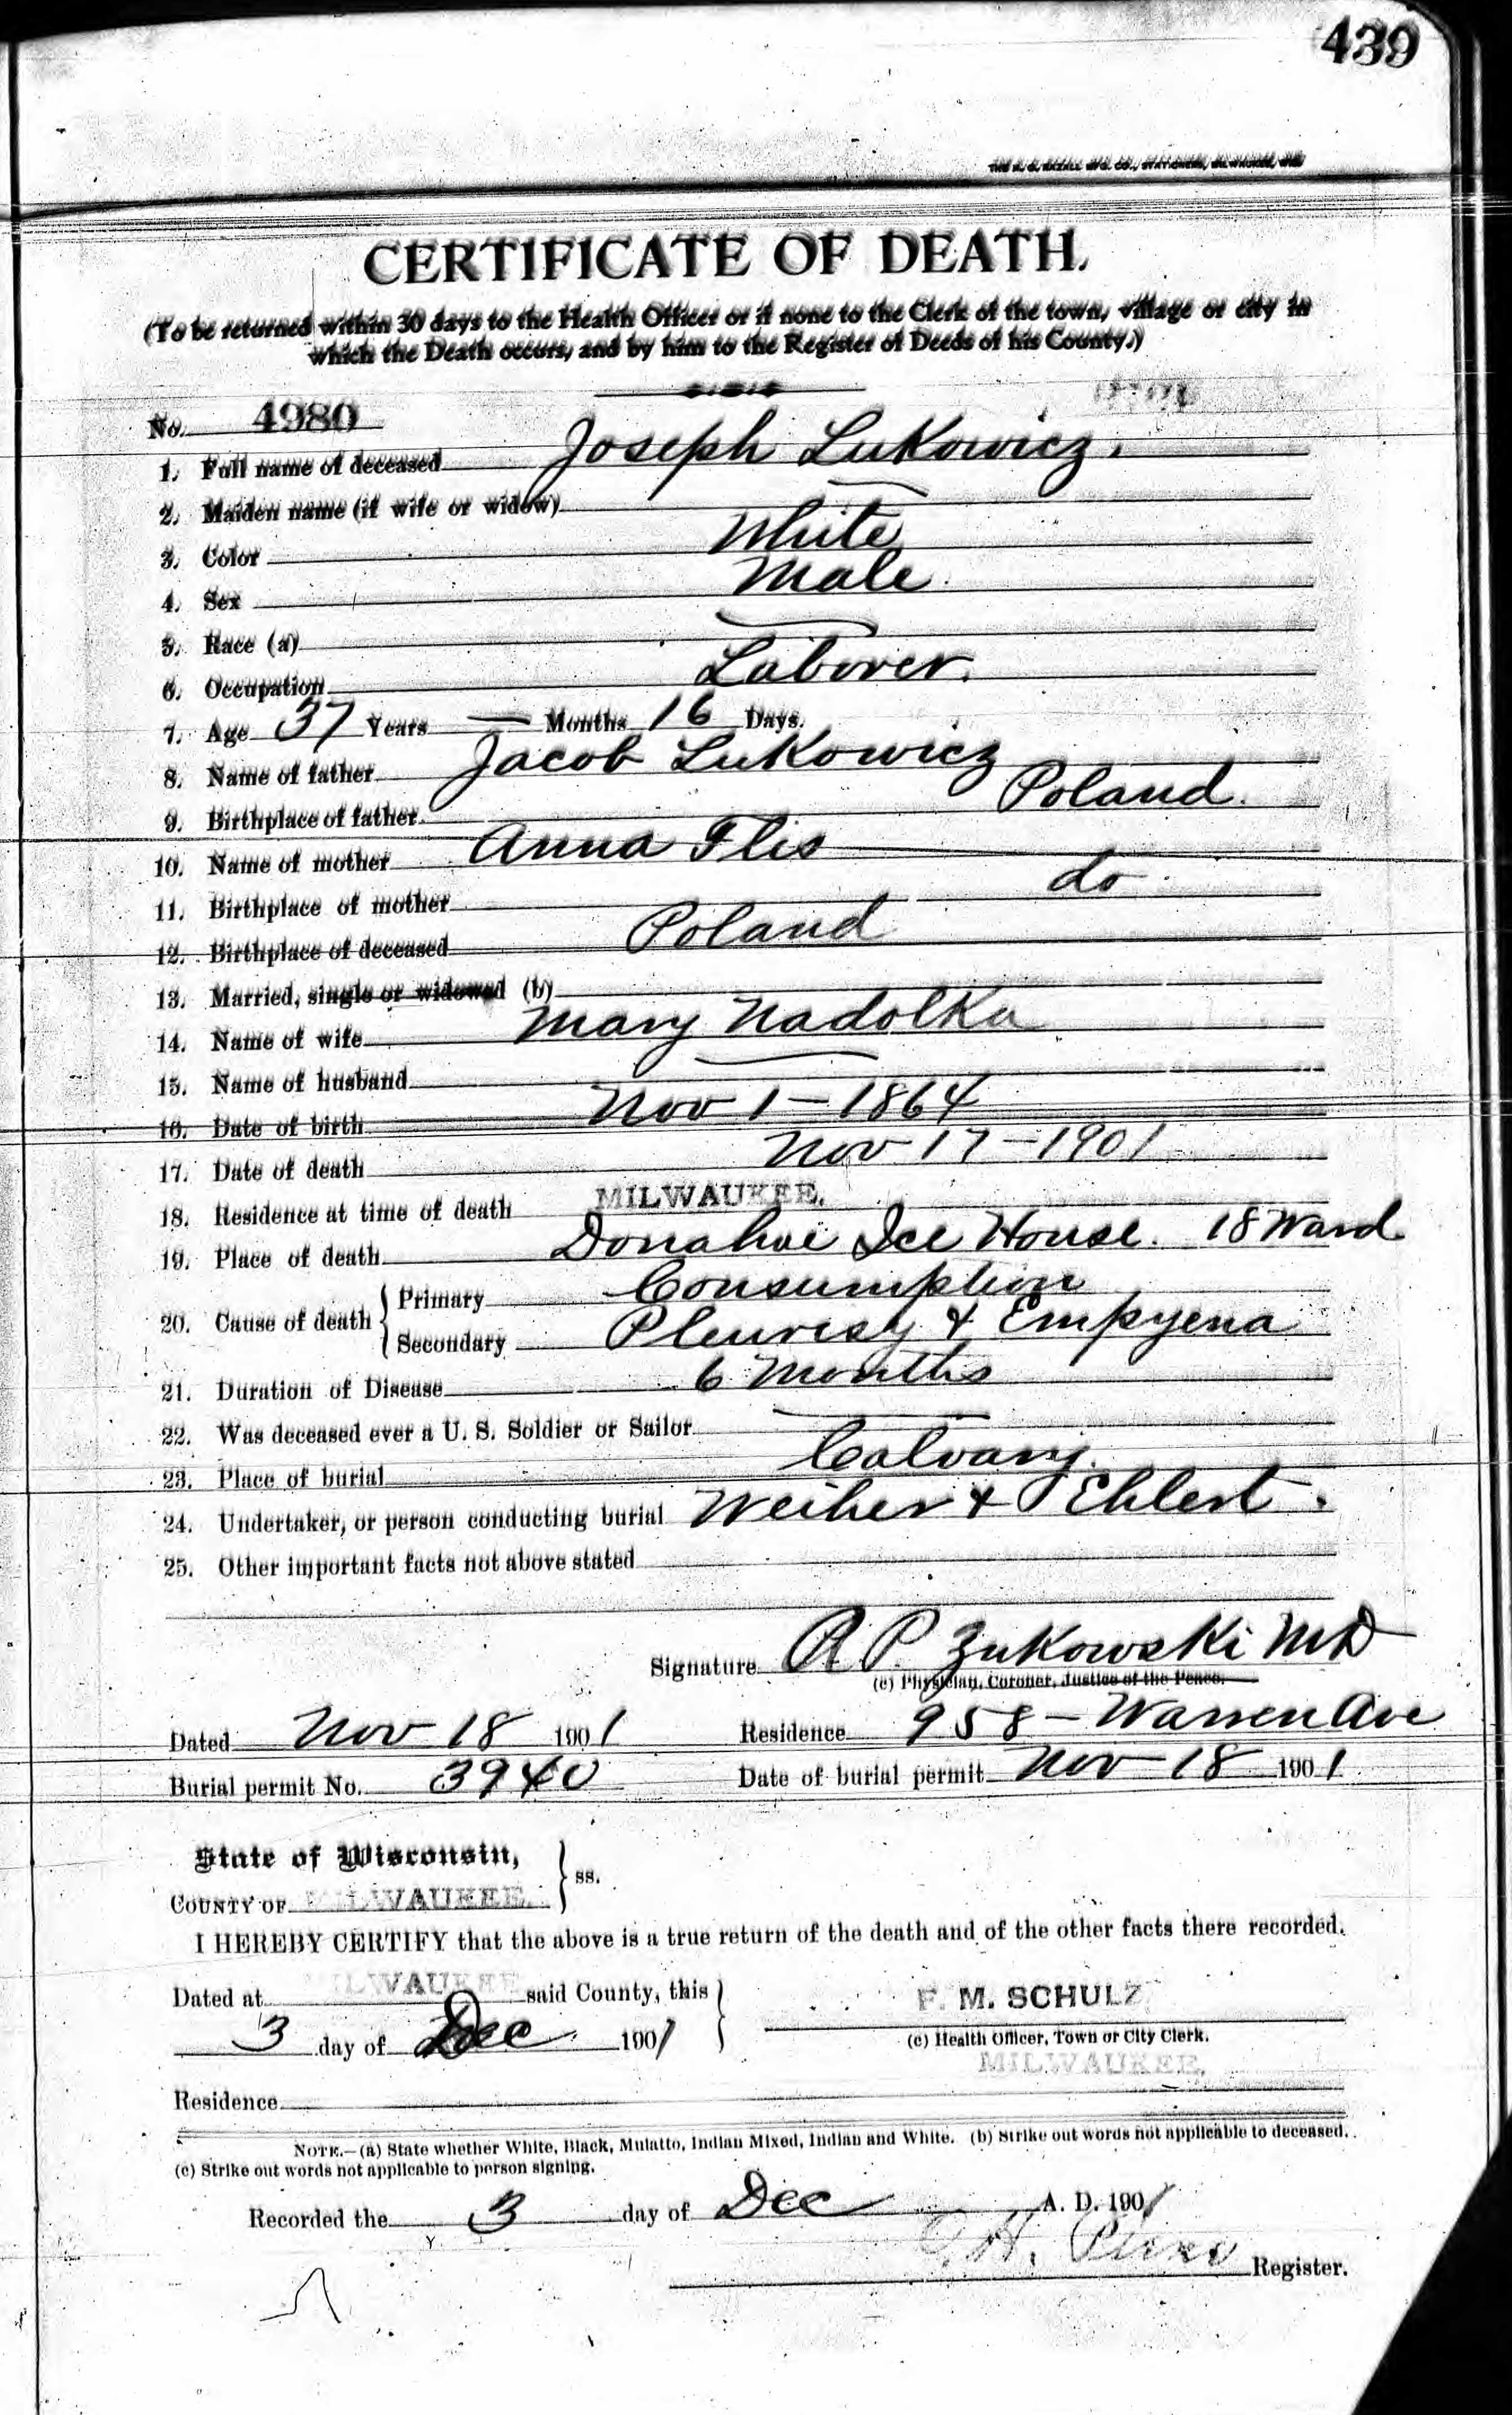 439
CERTIFICATE OF DEATH.
(To be returned within 30 days to the Health Officer or if none to the Clerk of the town, village or city in
which the Death occurs, and by him to the Register of Deeds of his County.)
No. 4980
1. Full name of deceased Joseph Lukowicz.
2. Maiden name (if wife or widow)
3. Color White
4. Sex Male.
5. Race (a)
6. Occupation Laborer.
7. Age 37 Years — Months 16 Days.
8. Name of father Jacob Lukowicz
9. Birthplace of father Poland.
10. Name of mother Anna Flis
11. Birthplace of mother do
12. Birthplace of deceased Poland
13. Married, single or widowed (b)
14. Name of wife Mary Nadolka
15. Name of husband
16. Date of birth Nov 1 – 1864
17. Date of death Nov 17 – 1901
18. Residence at time of death MILWAUKEE.
19. Place of death Donahue Ice House. 18 Ward
20. Cause of death { Primary Consumption
Secondary Pleuresy & Empyena
21. Duration of Disease 6 Months
22. Was deceased ever a U. S. Soldier or Sailor
23. Place of burial Calvary.
24. Undertaker, or person conducting burial Weiher & Ehlert.
25. Other important facts not above stated
Signature R. P. Zukowski MD
(c) Physician, Coroner, Justice of the Peace.
Dated Nov 18 1901 Residence 958 – Warren Ave
Burial permit No. 3940 Date of burial permit Nov 18 1901
State of Wisconsin, } ss.
COUNTY OF MILWAUKEE.
I HEREBY CERTIFY that the above is a true return of the death and of the other facts there recorded.
Dated at MILWAUKEE said County, this }
3 day of Dec 1901
F. M. SCHULZ
(c) Health Officer, Town or City Clerk.
MILWAUKEE.
Residence
NOTE.—(a) State whether White, Black, Mulatto, Indian Mixed, Indian and White. (b) Strike out words not applicable to deceased.
(c) Strike out words not applicable to person signing.
Recorded the 3 day of Dec A. D. 1901
Register.